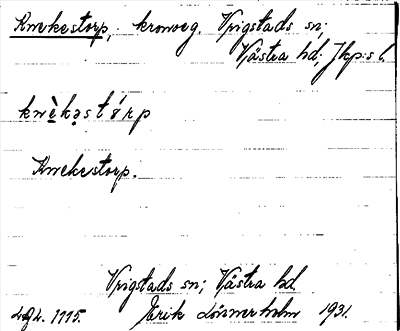 Kwekestorp, kronoeg. Vrigstads sn;
Västra hd; Jkp:s l.
kwèkəstórp
Kwekestorp.
Vrigstads sn; Västra hd.
Erik Lönnerholm 1931.